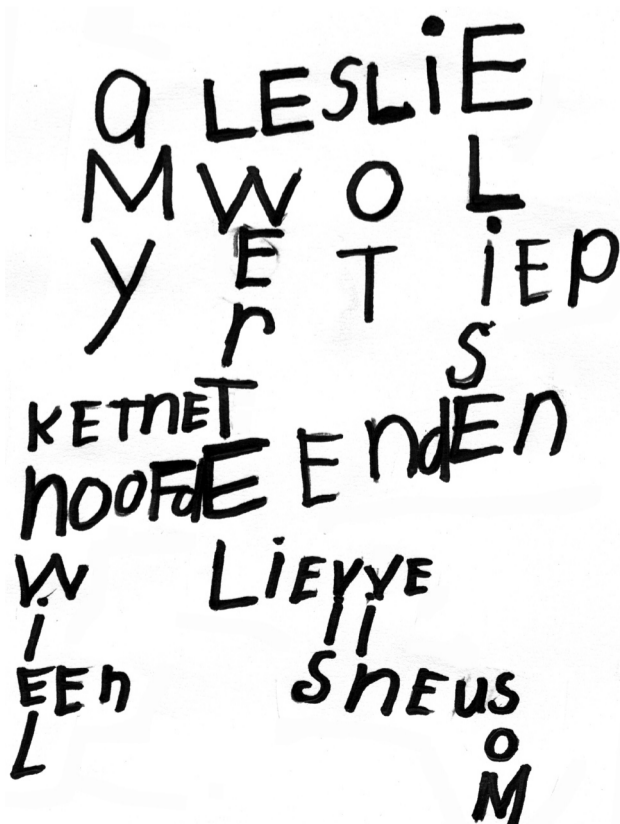 a LESLiE
M W O L
y E T iEP
r S
KETnET
EEndEn
nOOFdE
W LiEVVE
i ii
EEn SnEuS
L O
M